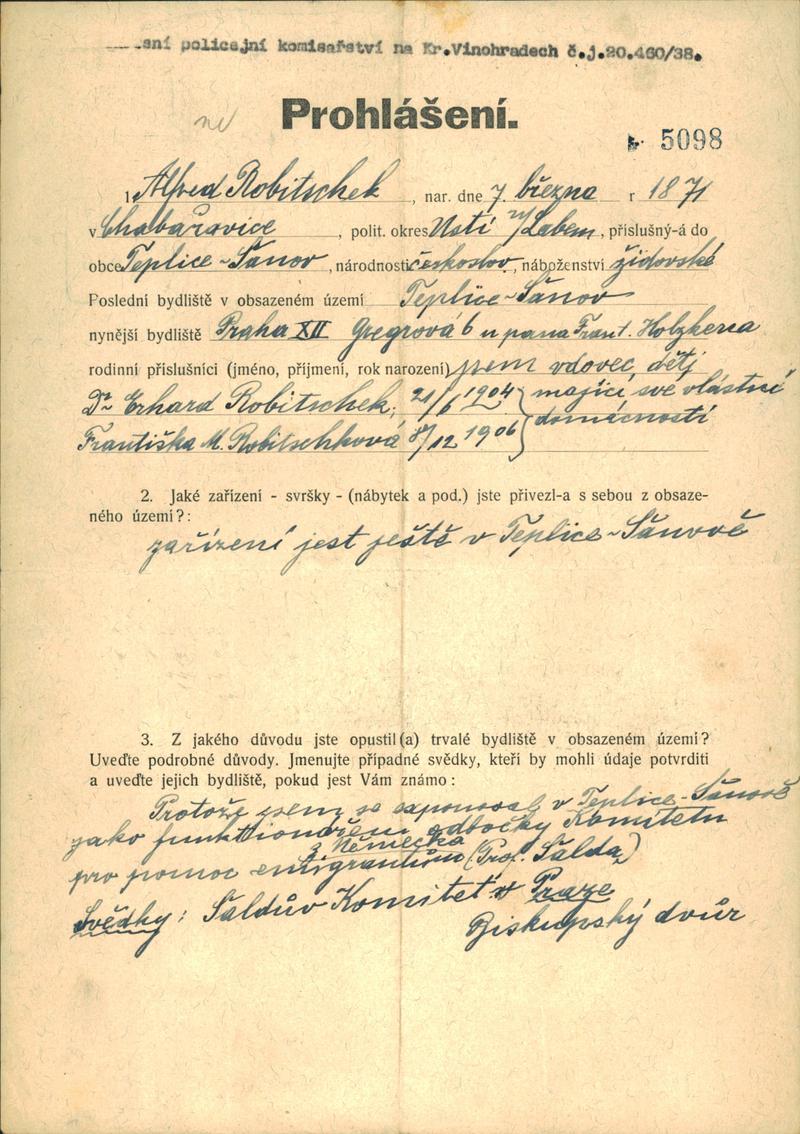 sní policejní komisařství na Kr.Vinohradech č.j.20.460/38.
Prohlášení.
5098
1 Alfred Robitschek, nar. dne 7. března r 1871
v Chabařovice, polit. okres Ústí n/Labem, příslušný-á do
obce Teplice-Šanov, národnosti českoslov., náboženství židovské
Poslední bydliště v obsazeném území Teplice-Šanov
nynější bydliště Praha XII Gregrová 6 u pana Frant. Holzknera
rodinní příslušníci (jméno, příjmení, rok narození) jsem vdovec, děti
Dr Erhard Robitschek, 21/6 1904 } mající své vlastní
Františka M. Robitschková 8/12 1906 } domácností
2. Jaké zařízení - svršky - (nábytek a pod.) jste přivezl-a s sebou z obsaze-
ného území?:
zařízení jest ještě v Teplice-Šanově
3. Z jakého důvodu jste opustil(a) trvalé bydliště v obsazeném území?
Uveďte podrobné důvody. Jmenujte případné svědky, kteří by mohli údaje potvrditi
a uveďte jejich bydliště, pokud jest Vám známo:
Protože jsem se exponoval v Teplice-Šanově
jako funktionář odbočky Komitétu
z Německa
pro pomoc emigrantům (Prof. Šalda)
Svědky: Šaldův Komitét v Praze
Biskupský dvůr